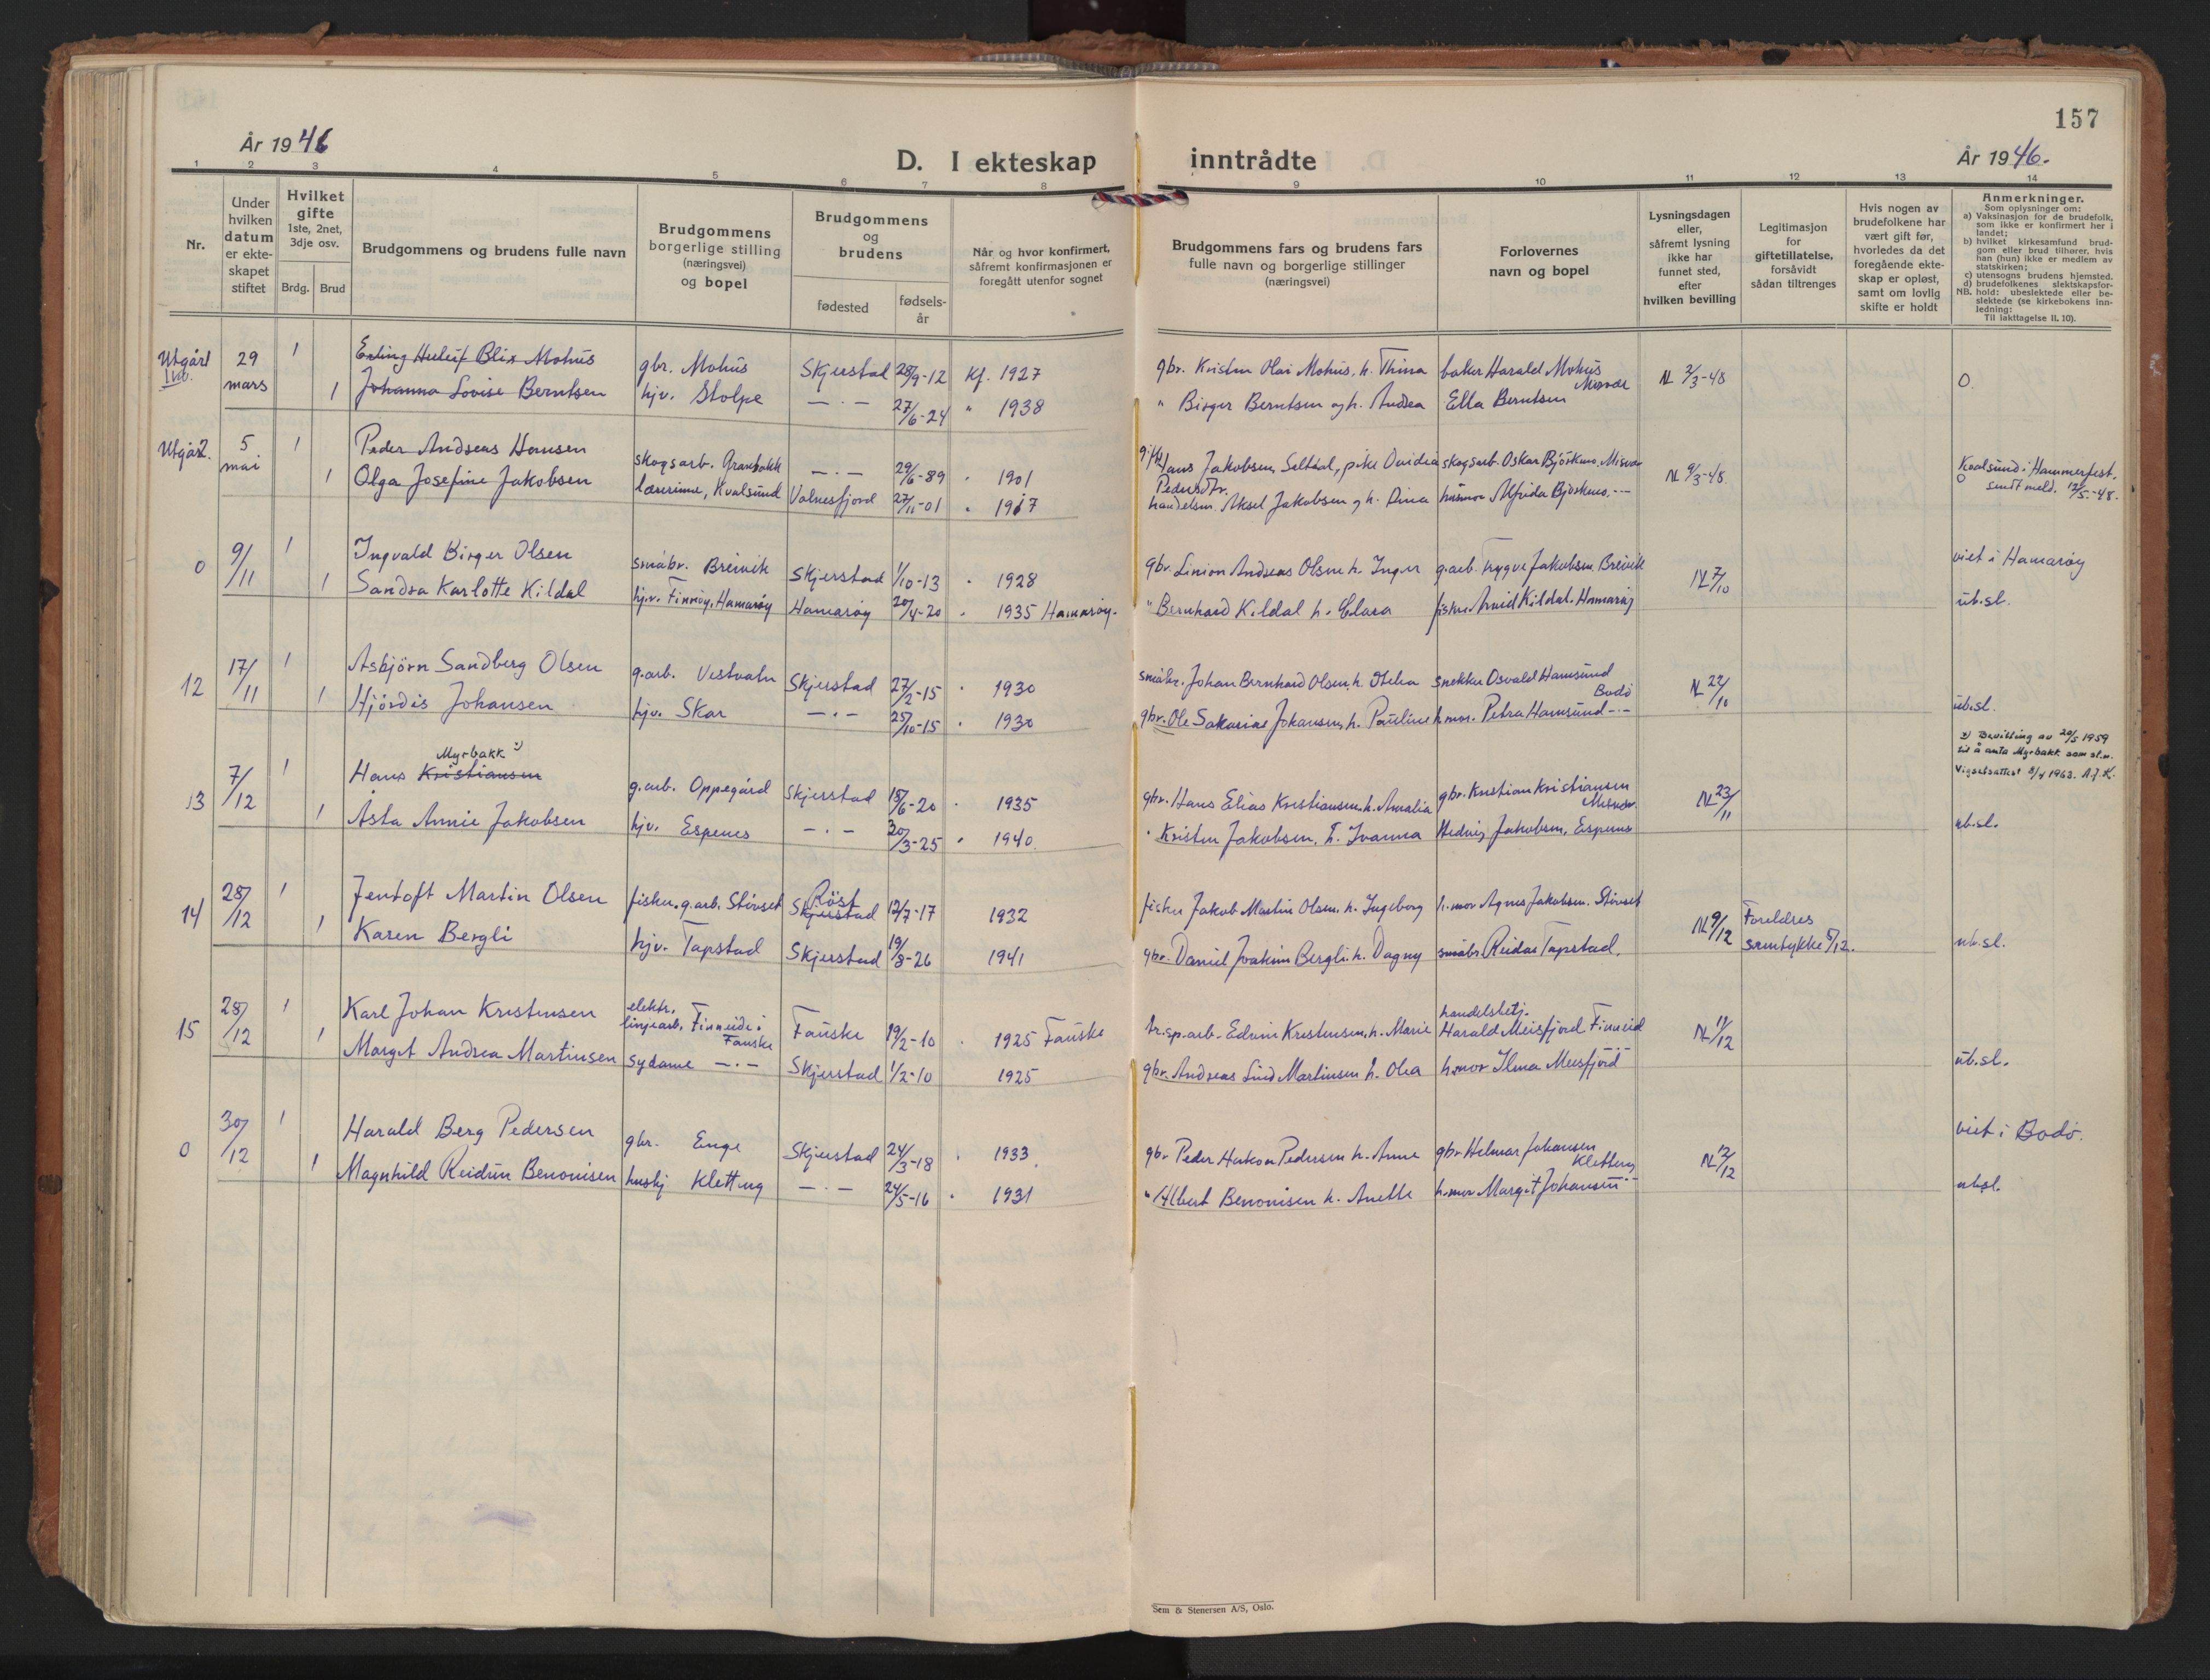 157
År 1946
År 1946.
D. I ekteskap inntrådte
1 2 3 4 5 6 7 8 9 10 11 12 13 14
Nr.
Under hvilken datum er ekte-skapet stiftet
Hvilket gifte 1ste, 2net, 3dje osv.
Brdg. Brud
Brudgommens og brudens fulle navn
Brudgommens borgerlige stilling (næringsvei) og bopel
Brudgommens og brudens
fødested
fødsels-år
Når og hvor konfirmert, såfremt konfirmasjonen er foregått utenfor sognet
Brudgommens fars og brudens fars fulle navn og borgerlige stillinger (næringsvei)
Forlovernes navn og bopel
Lysningsdagen eller, såfremt lysning ikke har funnet sted, efter hvilken bevilling
Legitimasjon for giftetillatelse, forsåvidt sådan tiltrenges
Hvis nogen av brudefolkene har vært gift før, hvorledes da det foregående ekte-skap er opløst, samt om lovlig skifte er holdt
Anmerkninger.
Som oplysninger om:
a) Vaksinasjon for de brudefolk, som ikke er konfirmert her i landet;
b) hvilket kirkesamfund brud-gom eller brud tilhører, hvis han (hun) ikke er medlem av statskirken;
c) utensogns brudens hjemsted.
d) brudefolkenes slektskapsfor-hold: ubeslektede eller be-slektede (se kirkebokens inn-ledning:
NB.
Til iakttagelse II, 10).
Utgår! 29 mars 1 Erling Blix Mohus gbr. Mohus Skjerstad 28/9-12 kf. 1927 gbr. Kristen Olai Mohus, h. Thina baker Harald Mohus Misvær N 2/3-48 O.
1 Johanna Lovise Berntsen hjv. Stolpe — · — 27/6-24 " 1938 " Birger Berntsen og h. Andrea Ella Berntsen
Utgår. 5 mai 1 Peder Andreas Hansen skogsarb. Granbakk — · — 29/6-89 " 1901 Hans Jakobsen, Saltdal, pike Ovidia Pedersdtr. skogsarb. Oskar Bjørkmo. Misvær N 9/3-48. Kvalsund i Hammerfest.
1 Olga Josefine Jakobsen lærerinne, Kvalsund Valnesfjord 27/11-01 " 1917 handelsm. Aksel Jakobsen og h. Dina husmor Alfrida Bjørkmo. — O sendt meld. 12/5-48.
0 9/11 1 Ingvald Birger Olsen småbr. Breivik Skjerstad 1/10-13 " 1928 gbr. Linion Andreas Olsen h. Inger g.arb. Trygve Jakobsen, Breivik N 7/10 viet i Hamarøy
1 Sandra Karlotte Kildal hj.v. Finnøy, Hamarøy Hamarøy 20/4-20 " 1935 Hamarøy. " Bernhard Kildal h. Clara fisker Arvid Kildal. Hamarøy ub.sl.
12 17/11 1 Asbjörn Sandberg Olsen g.arb. Vestvatn Skjerstad 27/2-15 " 1930 småbr. Johan Bernhard Olsen, h. snekker Osvald Hamsund Bodö N 22/10
1 Hjördis Johansen hjv. Skar — · — 25/10-15 " 1930 gbr. Ole Sakarias Johansen, h. Pauline h.mor. Petra Hamsund — ub.sl.
13 7/12 1 Hans Kristiansen Myrbakk x) g.arb. Oppegård Skjerstad 18/6-20 " 1935 gbr. Hans Elias Kristiansen, h. Amalia gbr. Kristian Kristiansen Misvær N 23/11 x) Bevilling av 20/5 1959 til å anta Myrbakk som sl.n. Vigselsattest 8/4 1963. A.J.K.
1 Asta Annie Jakobsen hjv. Espenes — · — 20/3-25 " 1940. " Kristen Jakobsen, h. Ivanna Hedvig Jakobsen, Espenes ub.sl.
14 28/12 1 Jentoft Martin Olsen fisker, g.arb. Stövset Röst Skjerstad 12/7-17 1932 fisker Jakob Martin Olsen, h. Ingeborg h.mor Agnes Jakobsen. Stövset N 9/12 Foreldres samtykke 5/12.
1 Karen Bergli hjv. Tapstad Skjerstad 19/3-26 1941 gbr. Daniel Joakim Bergli. h. Dagny småbr. Reidar Tapstad. ub.sl.
15 28/12 1 Karl Johan Kristensen elektr. linjearb. Finneide i Fauske Fauske 19/2-10 " 1925 Fauske tr.sp.arb. Edvin Kristensen, h. Marie handelsbetj. Harald Meisfjord Finneid N 11/12
1 Margit Andrea Martinsen sydame — · — Skjerstad 1/2-10 1925 gbr. Andreas Lind Martinsen h. Olea h.mor Ilma Meisfjord ub.sl.
0 30/12 1 Harald Berg Pedersen gbr. Enge Skjerstad 24/3-18 " 1933 gbr Peder Hakon Pedersen h. Anne gbr Helmar Johansen Kletteng N 12/12 viet i Bodö.
1 Magnhild Reidun Benonisen hushj Kletteng — · — 24/5-16 " 1931 " Albert Benonisen h. Anette h.mor Margit Johansen — ub.sl.
Sem & Stenersen A/S, Oslo.